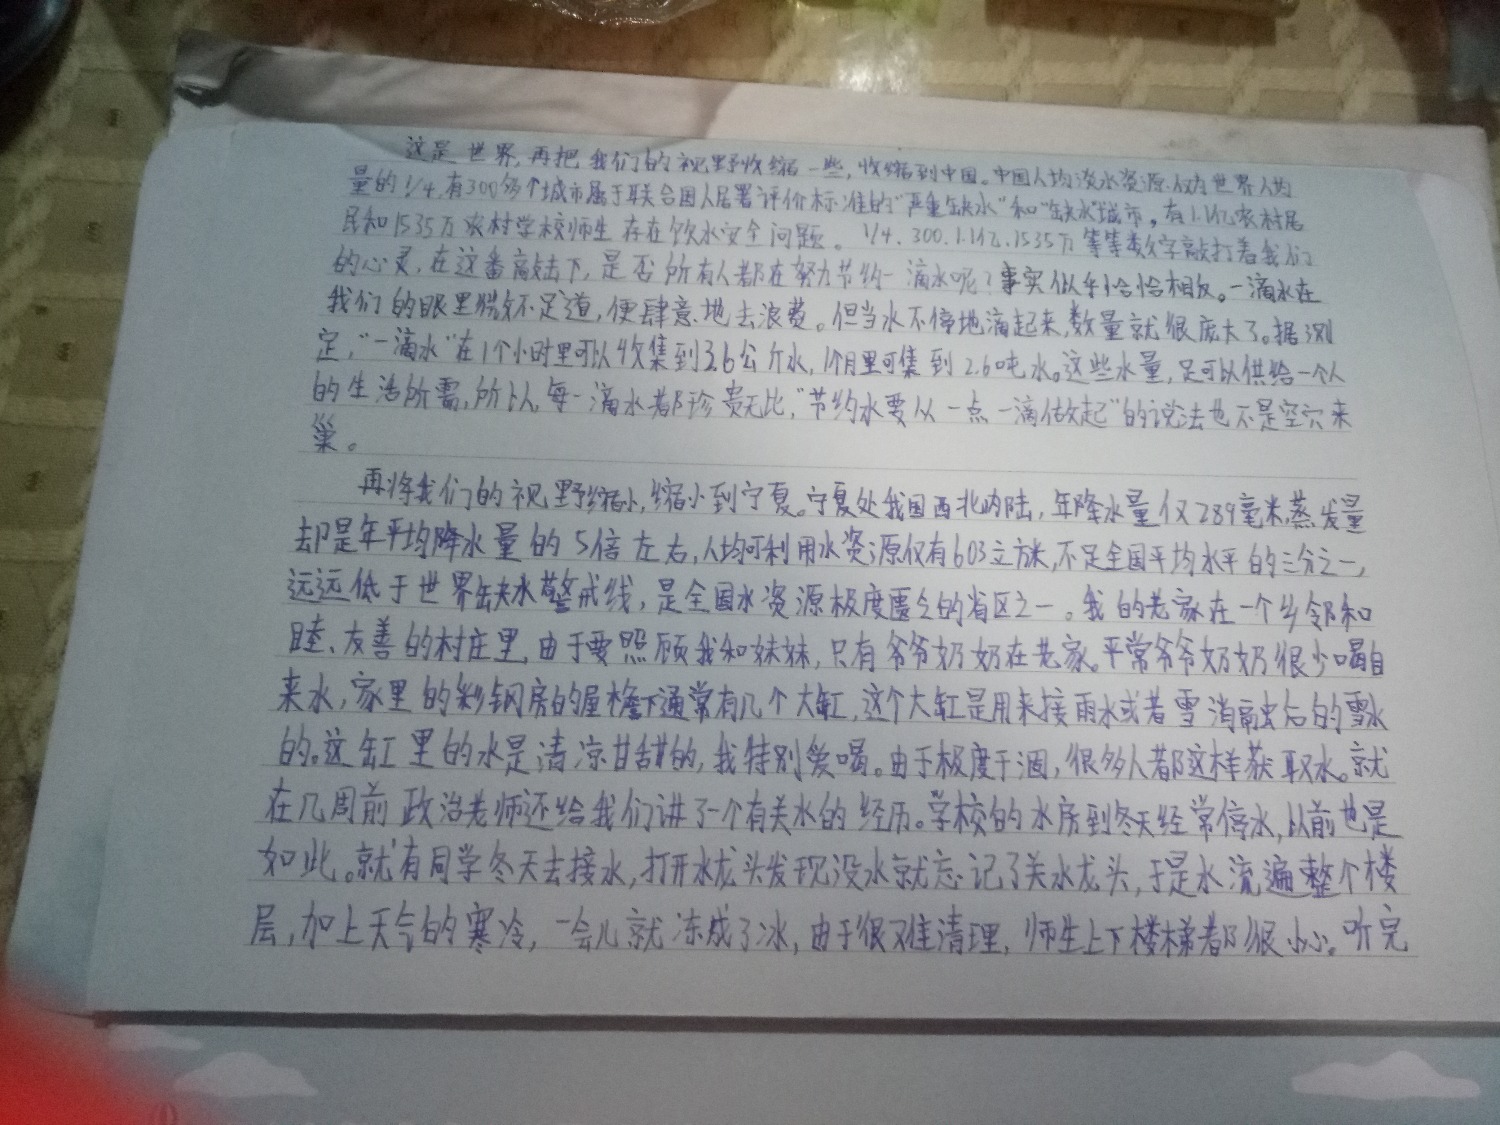 这是世界,再把我们的视野收缩一些,收缩到中国。中国人均淡水资源仅为世界人均
量的1/4,有300多个城市属于联合国人居署评价标准的“严重缺水”和“缺水”城市,有1.1亿农村居
民和1535万农村学校师生存在饮水安全问题。1/4.300.1.1亿.1535万等等数字敲打着我们
的心灵,在这番敲击下,是否所有人都在努力节约一滴水呢?事实似乎恰恰相反。一滴水在
我们的眼里微不足道,便肆意地去浪费。但当水不停地滴起来,数量就很庞大了。据测
定,“一滴水”在1个小时里可以收集到3.6公斤水,1个月里可集到2.6吨水。这些水量,足可以供给一个人
的生活所需,所以,每一滴水都珍贵无比,“节约水要从一点一滴做起”的说法也不是空穴来
巢。
再将我们的视野缩小,缩小到宁夏。宁夏处我国西北内陆,年降水量仅289毫米,蒸发量
却是年平均降水量的5倍左右,人均可利用水资源仅有603立方米,不足全国平均水平的三分之一,
远远低于世界缺水警戒线,是全国水资源极度匮乏的省区之一。我的老家在一个乡邻和
睦、友善的村庄里,由于要照顾我和妹妹,只有爷爷奶奶在老家。平常爷爷奶奶很少喝自
来水,家里的彩钢房的屋檐下通常有几个大缸,这个大缸是用来接雨水或者雪消融后的雪水
的。这缸里的水是清凉甘甜的,我特别爱喝。由于极度干涸,很多人都这样获取水。就
在几周前政治老师还给我们讲了一个有关水的经历。学校的水房到冬天经常停水,以前也是
如此。就有同学冬天去接水,打开水龙头发现没水就忘记了关水龙头,于是水流遍整个楼
层,加上天气的寒冷,一会儿就冻成了冰,由于很难清理,师生上下楼梯都很小心。听完